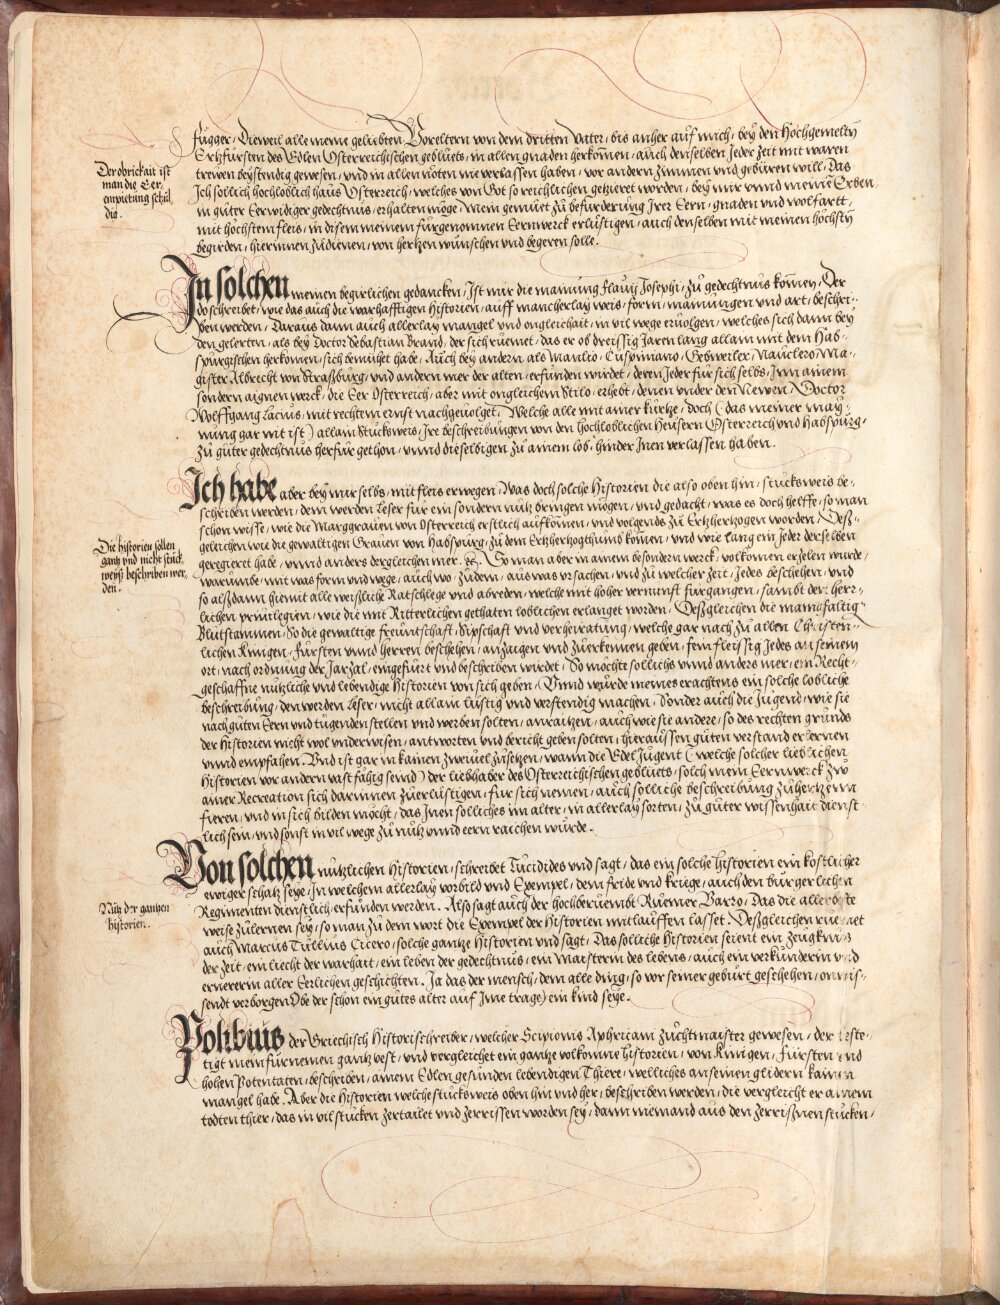 Fugger, Dieweil alle meine geliebten Voreltern von dem dritten Vater, bis anher auf mich, bey den Hochgemelten
Ertzfürsten des Edlen Osterreichischen geblüets, in allen gnaden herkomen, auch denselben Jeder zeit mit waren
trewen beystendig gewesen, vnd in allen nöten nie verlassen haben, vor andern zimmen vnd gebüren will, Das
Ich sollich hochloblich haus Österreich, welches von Got so reichlichen getzieret worden, bey mir vnnd meine Erben
in güter Eerwirdiger gedechtnus, erhalten möge, Mein gemüet zü befürderung Irer Eern, gnaden vnd wolfartt,
mit höchstem fleis, in disem meinem fürgenommen Eernwerck erlüstigen, auch denselben mit meinen höchsten
begirden, hierinnen zü dienen, von hertzen wünschen vnd begeren solle.
Der obrickait ist
man die Eer
enpietung schul
dig.
In solchen meinen begirlichen gedancken, Ist mir die mainung Flauii Josephi, zü gedechtnus komen, Der
do schreibet, wie das auch die warhafftigen Historien, auff mancherlay weis, form, mainungen vnd art, beschri-
ben werden, Daraus dann auch allerlay mangel vnd ongleichait, in vil wege eruolgen, welches sich dann bey
den gelerten, als bey Doctor Sebastian Brand, der sich rüemet, das er ob dreissig Jaren lang allain mit dem Hab-
spurgischen herkomen, sich bemühet habe, Auch bey andern als Manlio, Cuspiniano, Gebweiler, Nauclero, Ma-
gister Albrecht von Straßburg, vnd andern mer der alten, erfunden wirdet, deren Jeder für sich selbs, Inn ainem
sondern aignen werck, die Eer Osterreich, aber mit ongleichem Stilo, erhebt, denen vnder den Newen, Doctor
Wolffgang Lacius, mit rechtem ernst nachgeuolget, Welche alle mit ainer kürtze, doch (das meiner may-
nung gar nit ist) allain Stuckweis, Ire beschreibungen von den hochloblichen Heusern Osterreich vnd Habspurg,
zü güter gedechtnus herfür gethon, vnnd dieselbigen zü ainem lob, hinder Inen verlassen haben.
Ich habe aber bey mir selbs, mit fleis erwegen, Was doch solche Historien die also oben hin, stucksweis be-
schriben werden, dem werden Leser für ein sondern nutz bringen mögen, vnd gedacht, was es doch helffe, so man
schon wisse, wie die Marggrauen von Osterreich erstlich aufkomen, vnd volgends zü Ertzhertzogen worden, Deß-
geleichen wie die gewaltigen Grauen von Habspurg, zü dem Ertzhertzogthumb komen, vnd wie lang ein Jeder derselben
geregieret habe, vnnd anders dergleichen mer. So man aber in ainem besondern werck, volkomen erzelen wurde,
warumbe, mit was form vnd wege, auch wo, zü dem, aus was vrsachen, vnd zü welcher zeit, Jedes beschehen, vnd
so alsdann hiemit alle weisliche Ratschlege vnd abreden, welche mit hoher vernunft fürgangen, sambt der herr-
lichen priuilegien, wie die mit Ritterlichen gethaten loblichen erlanget worden, Deßgleichen die manigfaltig
Blutstammen, So die gewaltige freuntschaft, Sipschaft vnd verheiratung, welche gar nach zü allen Christen-
lichen Künigen, Fürsten vnnd herren beschehen, anzaigen vnd zuerkennen geben, fein fleissig Jedes an seinem
ort, nach ordnung der Jarzal, eingefürt vnd beschriben wirdet, So möchte solliche vnnd andere mer, ein Recht-
geschaffne nützliche vnd lebendige Historien von sich geben, Vnnd würde meines erachtens ein solche lobliche
beschreibung, den werden Leser, nicht allain lüstig vnd verstendig machen, Sonder auch die Jugend, wie sie
nach güten Eern vnd tugenden stellen vnd werben solten, anraitzen, auch wie sie andere, so des rechten grunds
der Historien nicht wol vnderwisen, antworten vnd bericht geben solten, hieraussen güten verstand erlernen
vnnd empfahen. Vnd ist gar in kainen zweiuel zusetzen, wann die Edel Jugent (welche solcher lieblichen
Historien vor andern vast fähig seind) der liebhaber des Osterreichischen geblüets, solch mein Eernwerck zwo
ainer Recreation sich darinnen zuerlüstigen, für sich nemen, auch solliche beschreibung zü hertzen
fieren, vnd in sich bilden möcht, das Inen solliches im alter, in allerlay sorten, zü güter wissenhait dienst-
lich sein, vnd sonst in vil wege zü nutz vnnd eern raichen würde.
Die historien sollen
gantz vnd nicht stück
weyß beschriben wer
den.
Von solchen nutzlichen Historien, schreibet Tucidides vnd sagt, das ein solche historien ein kostlicher
ewiger schatz seye, In welchem allerlay vorbild vnd Exempel, dem fride vnd kriege, auch den burgerlichen
Regimenten dienstlich, erfunden werden. Also sagt auch der hochberüembt Rüemer Varro, Das die allerbeste
weise zülernen sey, so man zü dem wort die Exempel der Historien mitlauffen lasset. Deßgleichen rüemet
auch Marcus Tullius Cicero, solche gantze Historien vnd sagt, Das solliche Historien seient ein zeugknus
der zeit, ein liecht der warhait, ein leben der gedechtnus, ein Maisterin des lebens, auch ein verkünderin vnd
ernererin aller Eerlichen geschichten. Ja das der mensch, dem alle ding, so vor seiner geburt geschehen, onwis-
send verborgen (Obe der schon ein gütes alter auf Ime trage) ein kind seye.
Nütz der gantzen
historien.
Polibius der Griechisch Historischreiber, welcher Scipionis Aphricani zuchtmaister gewesen, der beste-
tigt mein fürnemen gantz vest, vnd vergleichet ein gantze volkomne historien, von Künigen, Fürsten vnd
hohen Potentaten, beschriben, ainem Edlen gesunden lebendigen Thiere, welliches an seinen glidern kainen
mangel habe. Aber die Historien welche stucksweis oben hin vnd her, beschriben werden, die vergleicht er ainem
todten thier, das in vil stucken zertailet vnd zerrissen worden sey, dann niemand aus den zerrißnen stucken,